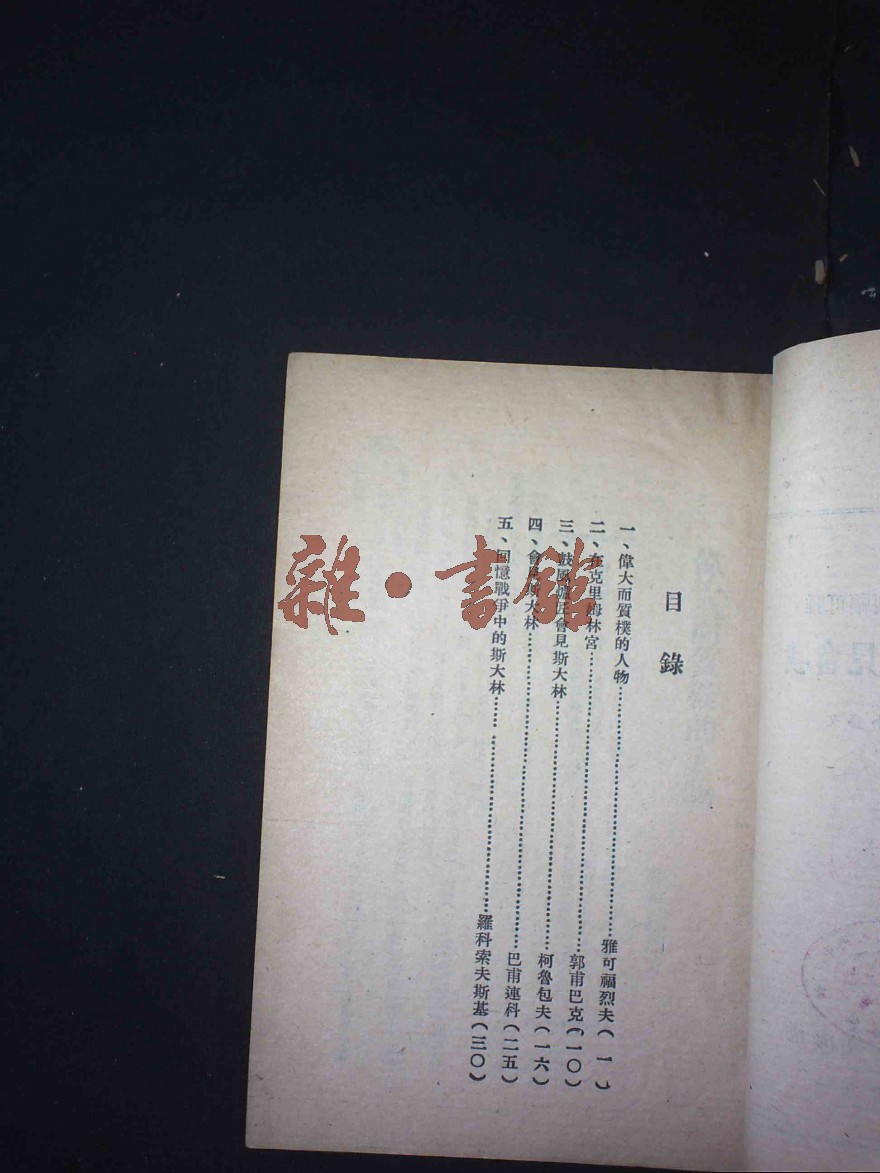 目錄
一、偉大而質樸的人物……雅可福烈夫(一)
二、在克里姆林宮……郭甫巴克(一〇)
三、鼓風爐 會見斯大林……柯魯包夫(一六)
四、會見斯大林……巴甫連科(二五)
五、回憶戰爭中的斯大林……羅科索夫斯基(三〇)
雜·書館